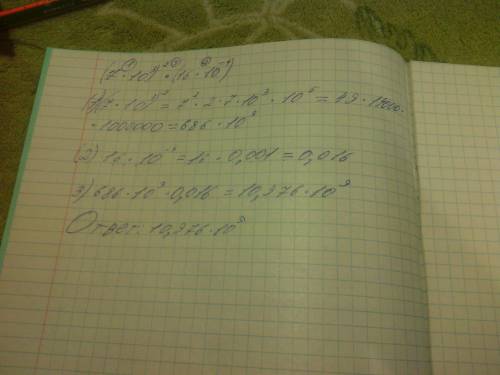 (7·10³)² · (16·10⁻³)
1) (7·10³)² = 7² · 2·7·10³ · 10⁶ = 49 · 14000 ·
· 1000000 = 686 · 10⁹
2) 16 · 10⁻³ = 16 · 0,001 = 0,016
3) 686 · 10⁹ · 0,016 = 10,976 · 10⁹
Ответ: 10,976 · 10⁹